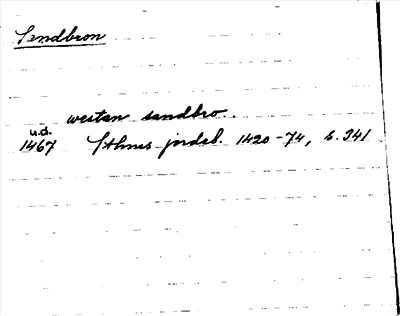 Sandbron
westan sandbro.
u.d.
1467 Sthms jordeb. 1420-74, s. 341